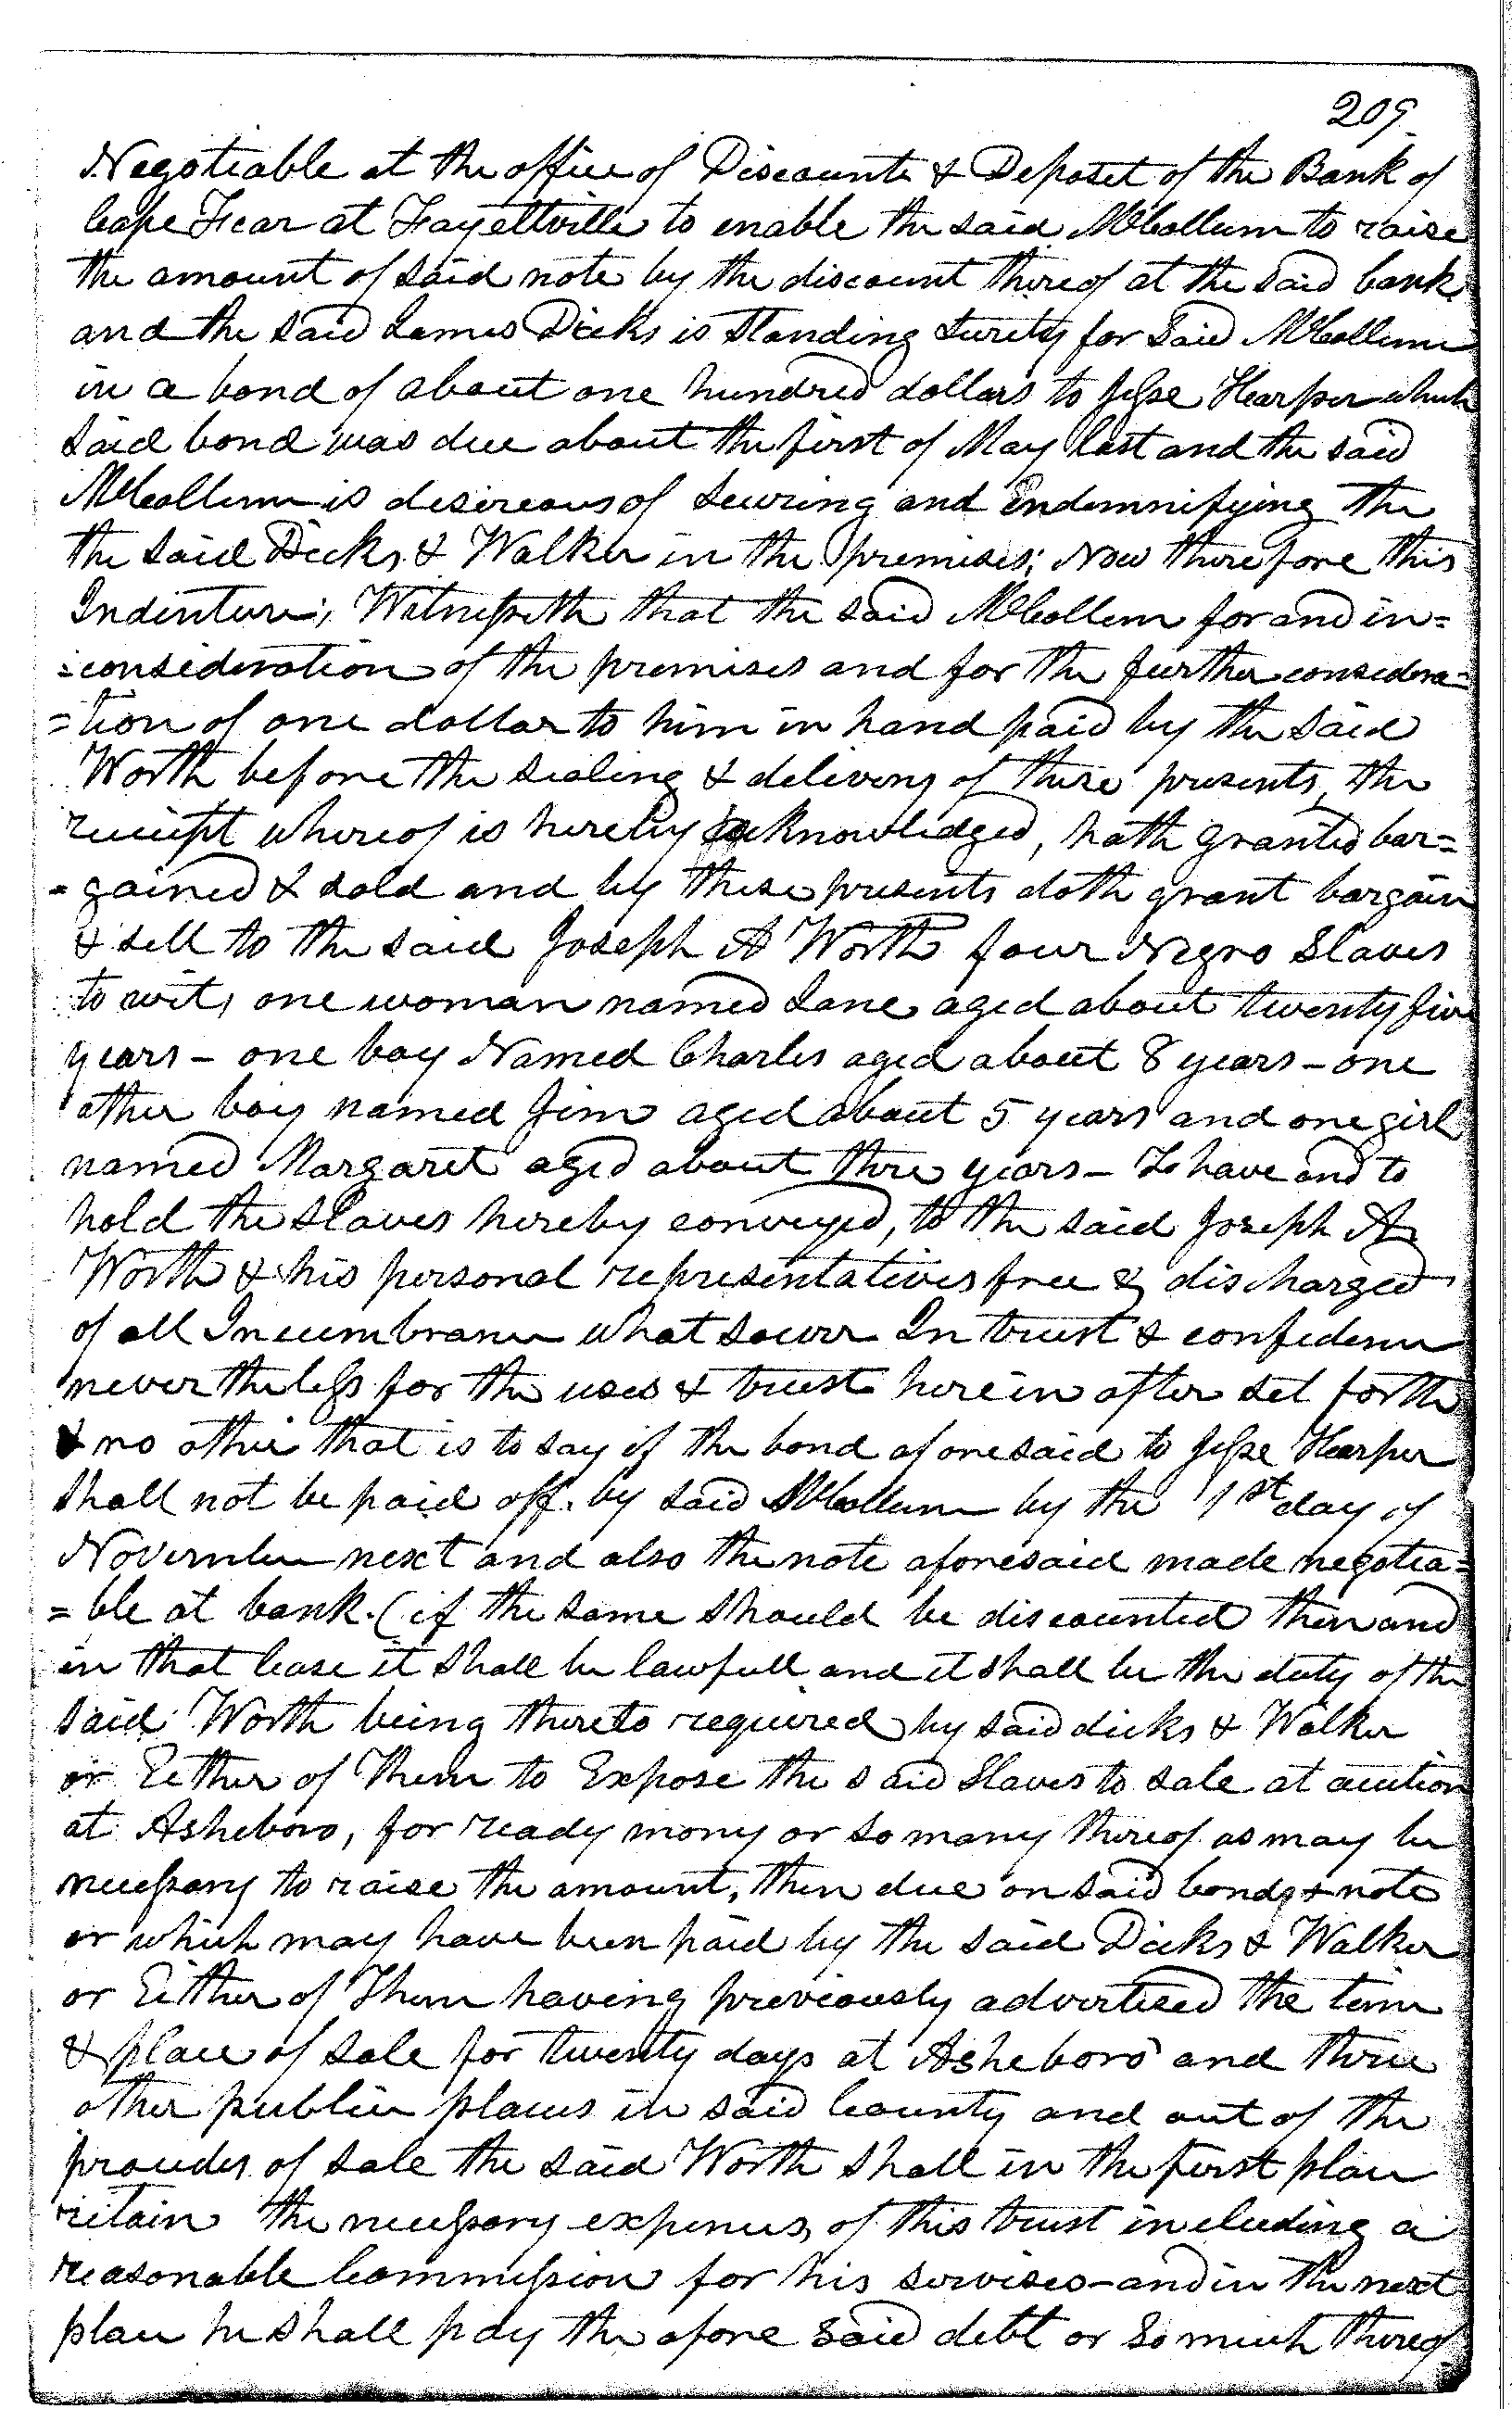 209
Negotiable at the office of Discounts & Deposet of the Bank of
Cape Fear at Fayettville to enable the said McCollum to raise
the amount of said note by the discount thereof at the said bank
and the said James Dicks is standing surety for said McCollum
in a bond of about one hundred dollars to Jesse Harper which
said bond was due about the first of May last and the said
McCollum is desireous of securing and indemnifying the
the said Dicks & Walker in the premises; Now therefore this
Indenture; Witnesseth that the said McCollum for and in=
=consideration of the premises and for the further considera=
=tion of one dollar to him in hand paid by the said
Worth before the sealing & delivery of these presents, the
receipt whereof is hereby acknowledged, hath granted bar=
=gained & sold and by these presents doth grant bargain
& sell to the said Joseph A Worth four Negro Slaves
to wit, one woman named Jane aged about twenty five
years - one boy Named Charles aged about 8 years - one
other boy named Jim aged about 5 years and one girl
named Margaret aged about three years - To have and to
hold the slaves hereby conveyed, to the said Joseph A
Worth & his personal representatives free & discharged
of all Incumbrance what soever In trust & confidence
never theless for the uses & trusts herein after set forth
& no other that is to say if the bond aforesaid to Jesse Harper
shall not be paid off. by said McCollum by the 1st day of
November next and also the note aforesaid made negotia=
=ble at bank. (if the same should be discounted then and
in that Case it shall be lawfull and it shall be the duty of the
said Worth being thereto required by said dicks & Walker
or Either of Them to Expose the said Slaves to sale at auction
at Asheboro, for ready mony or so many thereof as may be
necessary to raise the amount, then due on said bond & note
or which may have been paid by the said Dicks & Walker
or Either of Them having previously advertised the time
& place of sale for twenty days at Asheboro and three
other public places in said County and out of the
proceedes of sale the said Worth shall in the first place
retain the necessary expences of this trust including a
reasonable Commission for his servises - and in the next
place he shall pay the afore said debt or so much thereof